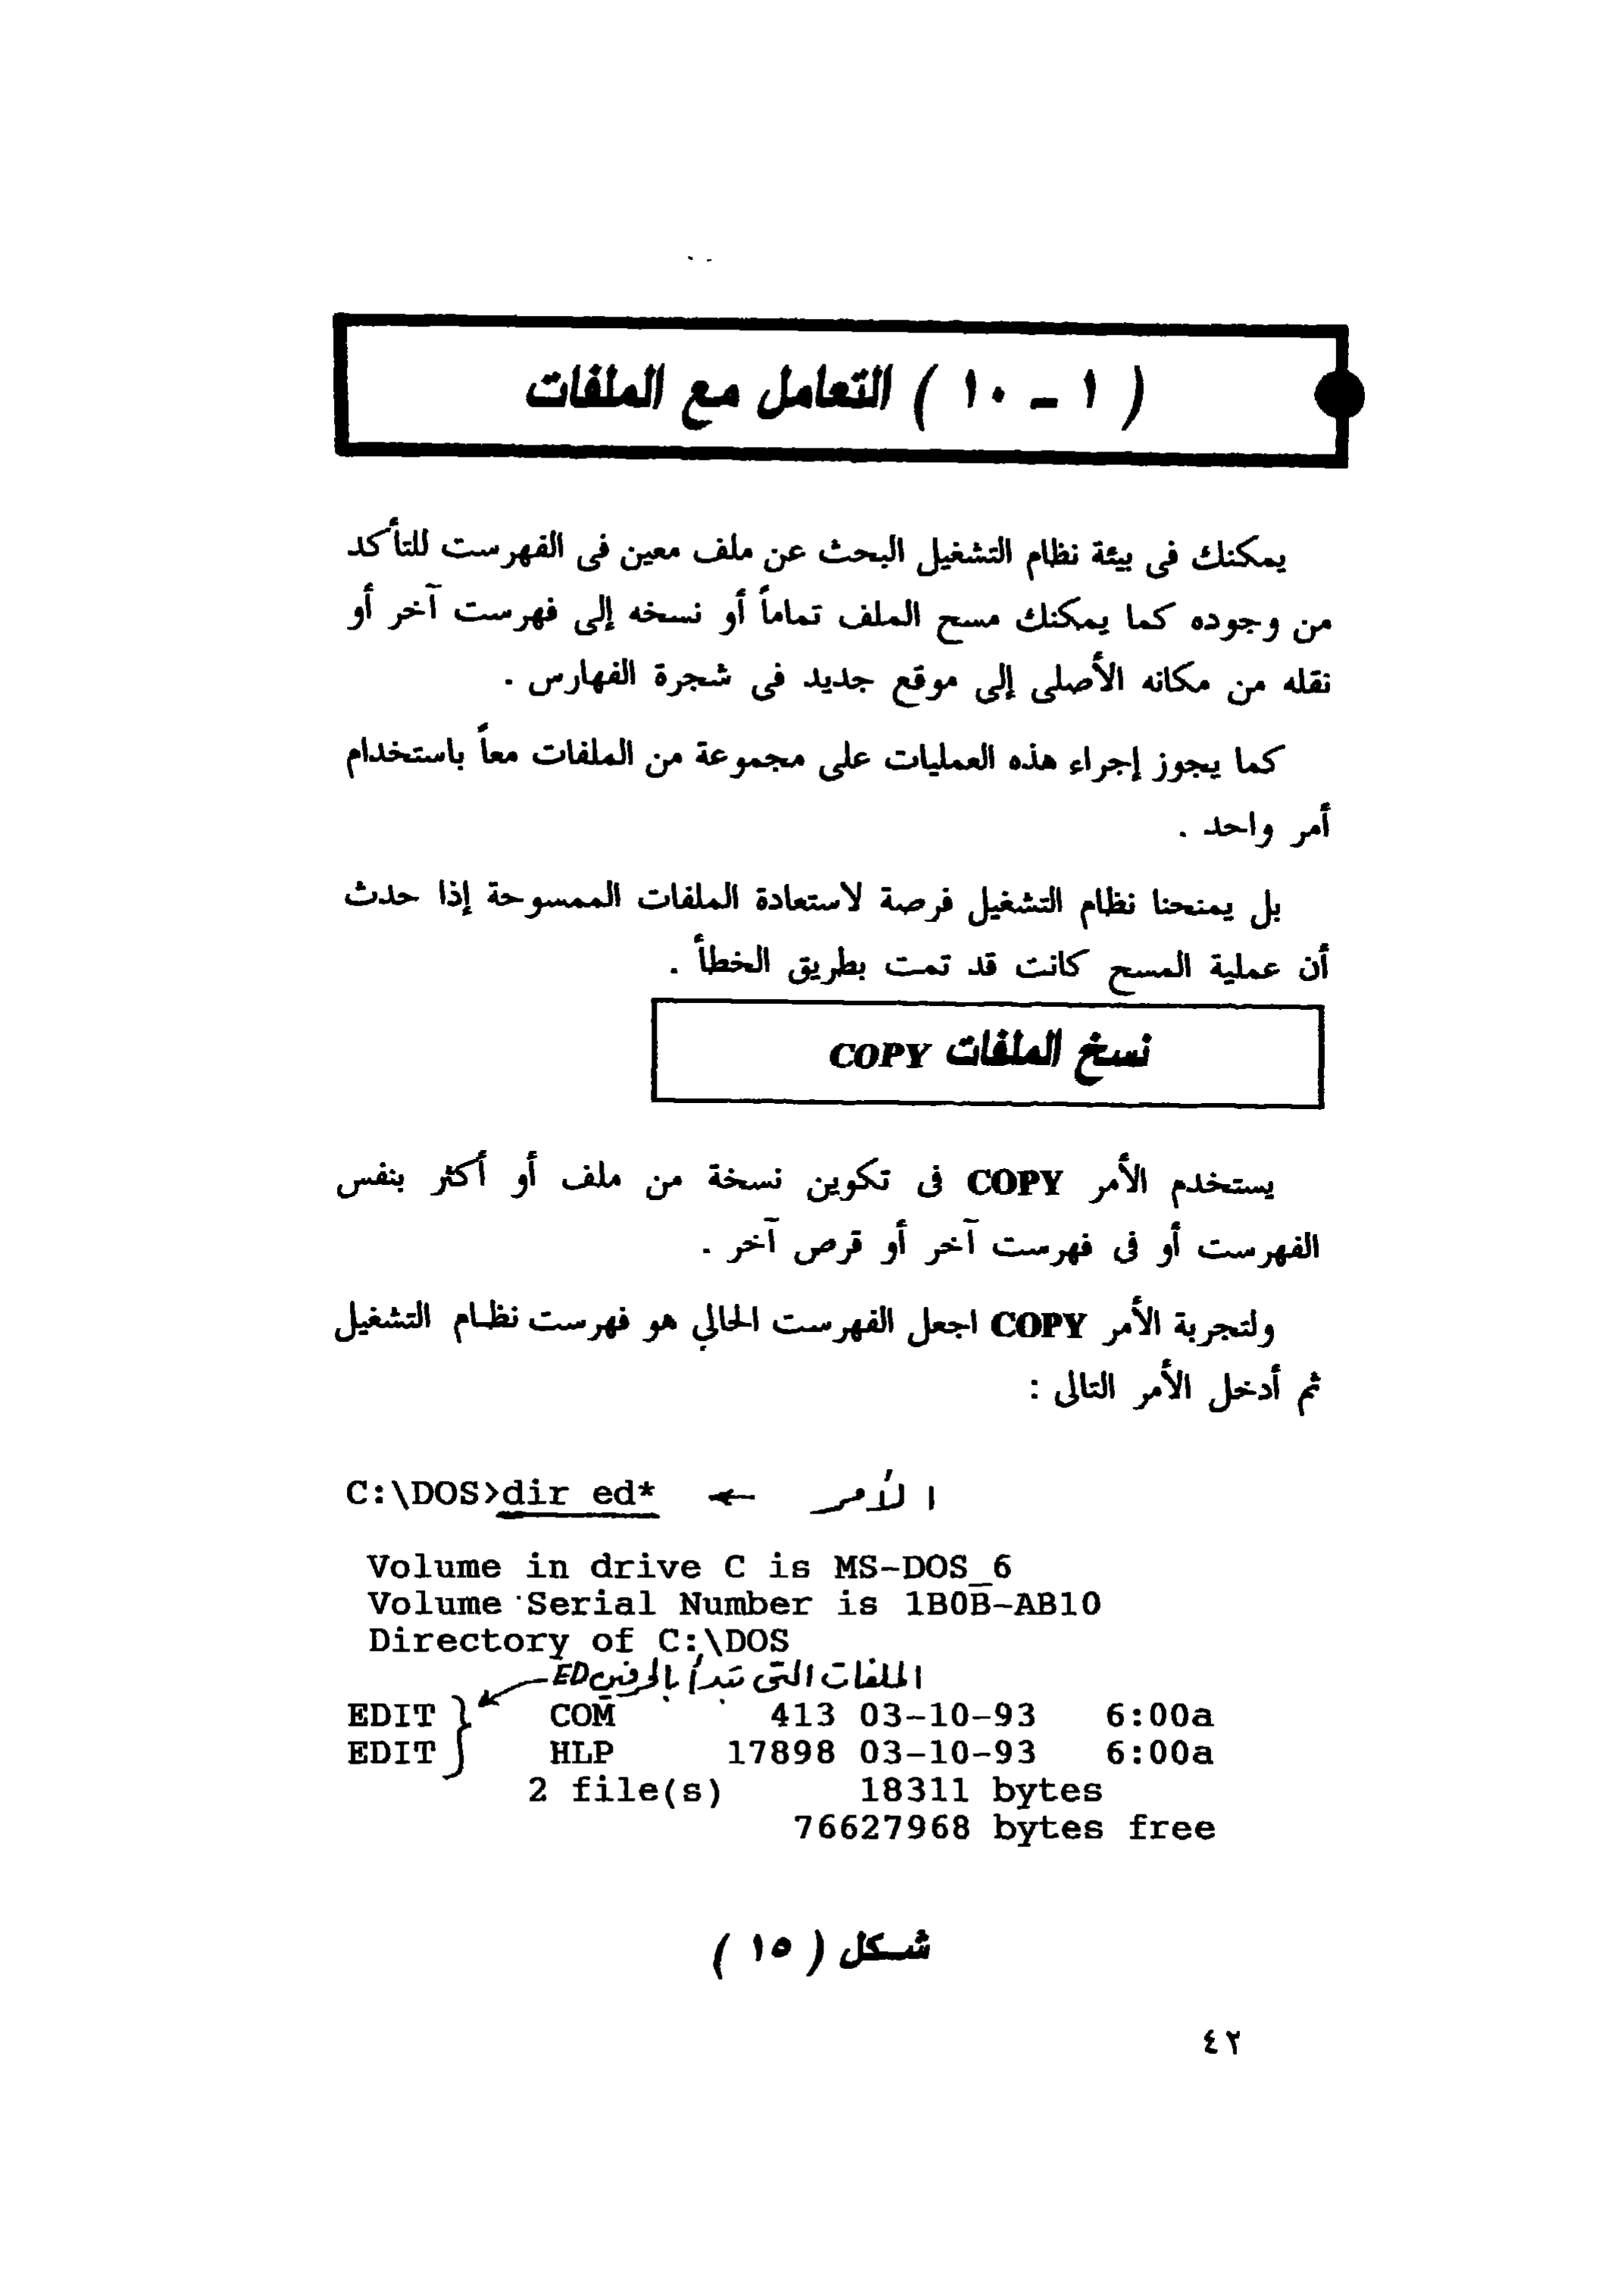 ( ١ ـ ١٠ ) التعامل مع الملفات
يمكنك فى بيئة نظام التشغيل البحث عن ملف معين فى الفهرست للتأكد
من وجوده كما يمكنك مسح الملف تماماً أو نسخه إلى فهرست آخر أو
نقله من مكانه الأصلى إلى موقع جديد فى شجرة الفهارس .
كما يجوز إجراء هذه العمليات على مجموعة من الملفات معاً باستخدام
أمر واحد .
بل يمنحنا نظام التشغيل فرصة لاستعادة الملفات الممسوحة إذا حدث
أن عملية المسح كانت قد تمت بطريق الخطأ .
نسخ الملفات COPY
يستخدم الأمر COPY فى تكوين نسخة من ملف أو أكثر بنفس
الفهرست أو فى فهرست آخر أو قرص آخر .
ولتجربة الأمر COPY اجعل الفهرست الحالي هو فهرست نظام التشغيل
ثم أدخل الأمر التالى :
C:\DOS>dir ed* ← الأمر
Volume in drive C is MS-DOS_6
Volume Serial Number is 1B0B-AB10
Directory of C:\DOS
الملفات التى تبدأ بالحرفين ED
EDIT COM 413 03-10-93 6:00a
EDIT HLP 17898 03-10-93 6:00a
2 file(s) 18311 bytes
76627968 bytes free
شكل ( ١٥ )
٤٢